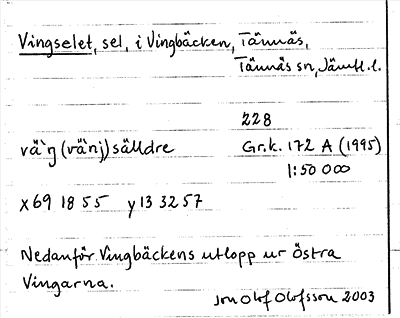 Vingselet, sel, i Vingbäcken, Tännäs,
Tännäs sn, Jämtl. l.
228
vä`ŋ (vä`nj) sälldre Gr.k. 172 A (1995)
1:50 000
x 69 18 55 y 13 32 57
Nedanför Vingbäckens utlopp ur Östra
Vingarna.
Jon Olof Olofsson 2003